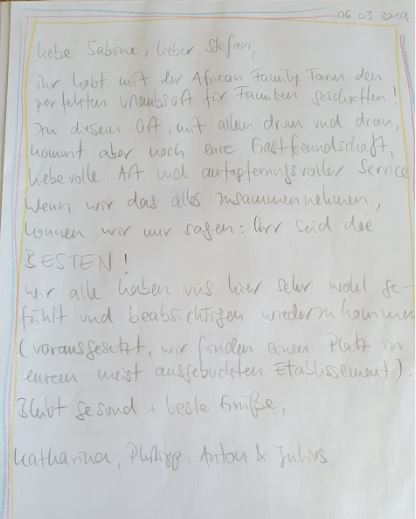 06.03.2019
Liebe Sabine, lieber Stefan,
ihr habt mit der African Family Farm den
perfekten Urlaubsort für Familien geschaffen!
Zu diesem Ort, mit allem drum und dran,
kommt aber noch eure Gastfreundschaft,
liebevolle Art und aufopferungsvoller Service
Wenn wir das alles zusammennehmen,
können wir nur sagen: Ihr seid die
BESTEN!
Wir alle haben uns hier sehr wohl ge-
fühlt und beabsichtigen wiederzukommen
(vorausgesetzt, wir finden einen Platz in
eurem meist ausgebuchten Etablissement).
Bleibt gesund + beste Grüße,
Katharina, Philipp, Anton & Julius